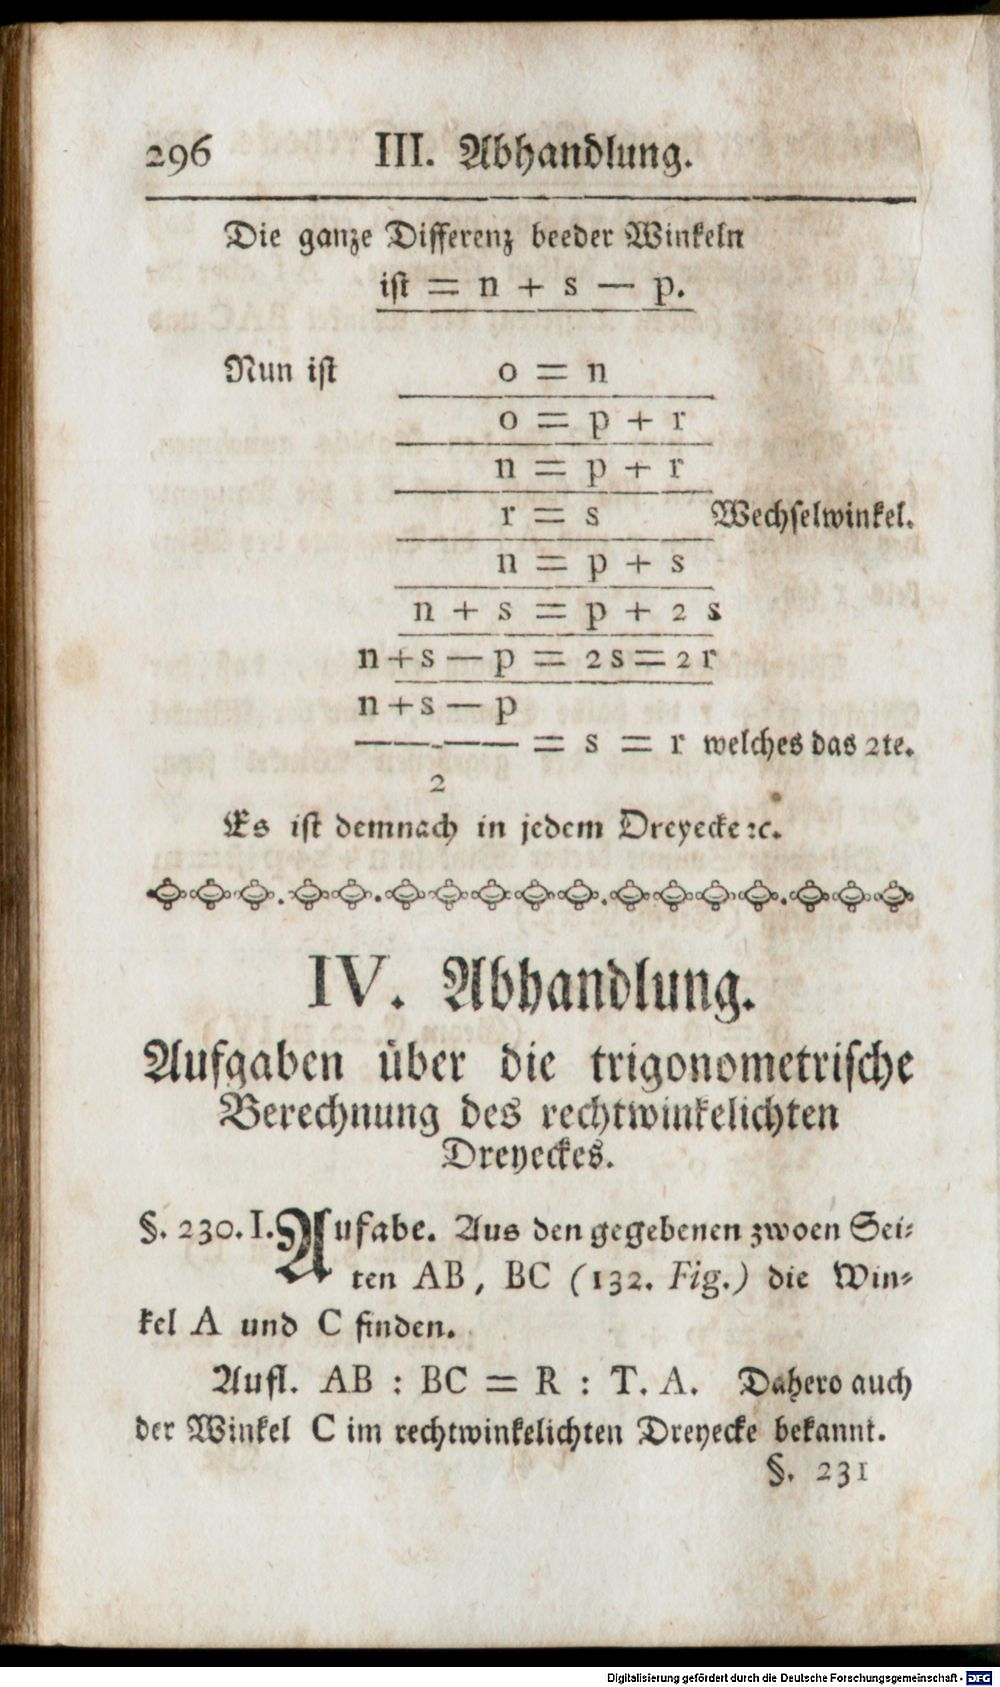 296 III. Abhandlung.
Die ganze Differenz beeder Winkeln
ist = n + s — p.
Nun ist o = n
o = p + r
n = p + r
r = s Wechselwinkel.
n = p + s
n + s = p + 2 s
n + s — p = 2 s = 2 r
n + s — p
——— = s = r welches das 2te.
2
Es ist demnach in jedem Dreyecke ꝛc.
IV. Abhandlung.
Aufgaben über die trigonometrische
Berechnung des rechtwinkelichten
Dreyeckes.
§. 230. I. Aufabe. Aus den gegebenen zwoen Sei⸗
ten AB, BC (132. Fig.) die Win⸗
kel A und C finden.
Aufl. AB : BC = R : T. A. Dahero auch
der Winkel C im rechtwinkelichten Dreyecke bekannt.
§. 231
Digitalisierung gefördert durch die Deutsche Forschungsgemeinschaft - DFG